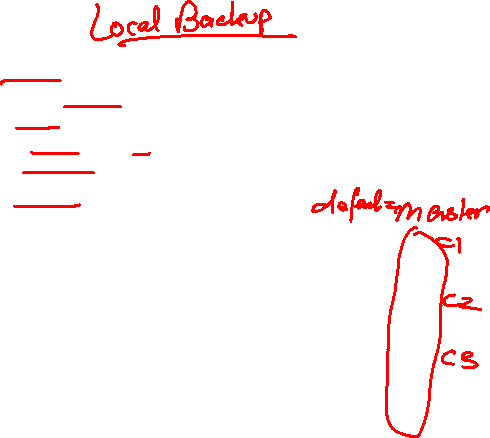 Local Backup
default=Master
C1
C2
C3